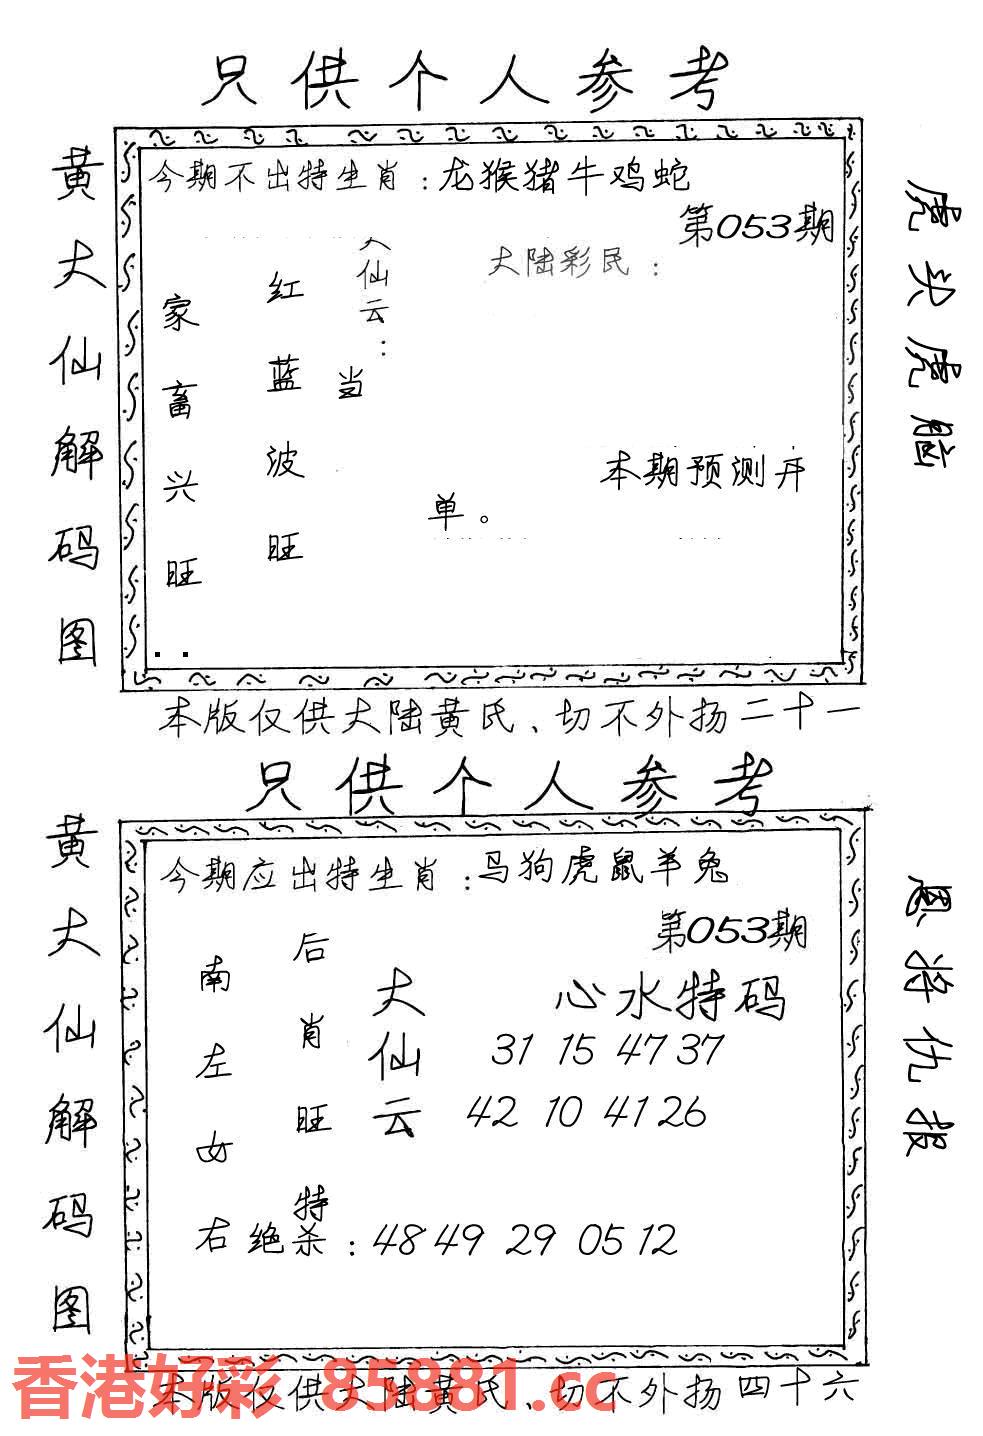 只供个人参考
黄大仙解码图
今期不出特生肖：龙猴猪牛鸡蛇
第053期
虎头虎脑
大仙云：
大陆彩民：
红蓝波旺
家畜兴旺
当
本期预测开
单。
本版仅供大陆黄氏、切不外扬二十一
只供个人参考
黄大仙解码图
今期应出特生肖：马狗虎鼠羊兔
第053期
恩将仇报
南左女右
后肖旺特
大仙云
心水特码
31 15 47 37
42 10 41 26
绝杀：48 49 29 05 12
香港好彩 85881.cc
本版仅供大陆黄氏、切不外扬四十六